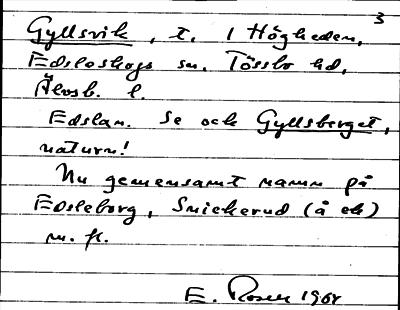 3
Gyllsvik, t. 1 Högheden,
Edsleskogs sn. Tössbo hd,
Älvsb. l.
Edslan. Se och Gyllsberget,
naturn!
Nu gemensamt namn på
Edsleborg, Snickerud (å ek)
m. fl.
E. Rosen 1968